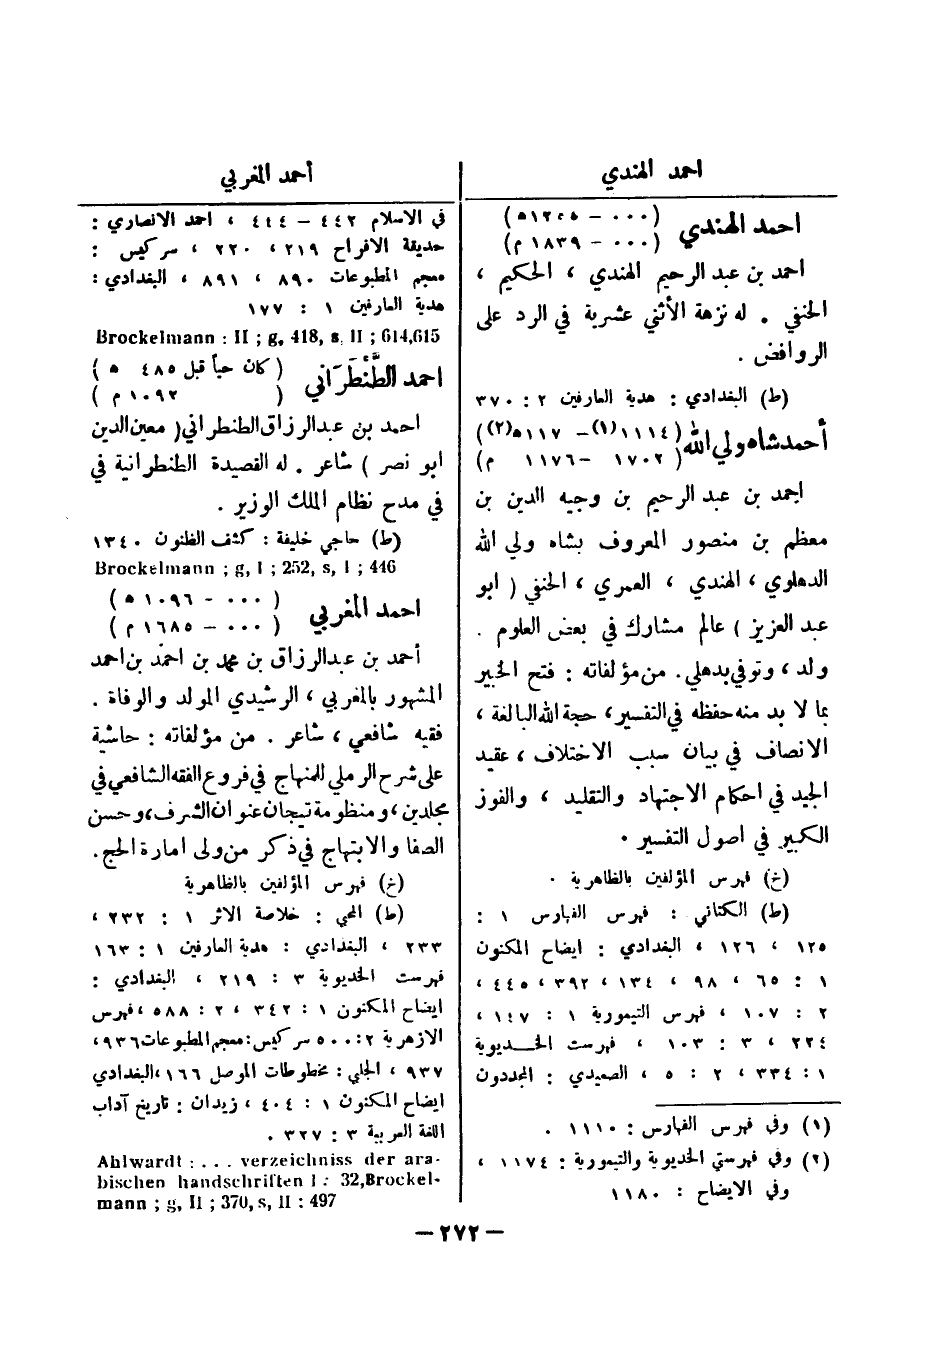 احمد الهندي
احمد الهندي (٠٠٠ – ١٢٥٥ ه)
(٠٠٠ – ١٨٣٩ م)
احمد بن عبد الرحيم الهندي ، الحكيم ،
الحنفي . له نزهة الأثني عشرية في الرد على
الروافض .
(ط) البغدادي : هدية العارفين ٢ : ٣٧٠
أحمد شاه ولي الله (١١١٤(١) – ١١٧ ه(٢))
(١٧٠٢ – ١١٧٦ م)
احمد بن عبد الرحيم بن وجيه الدين بن
معظم بن منصور المعروف بشاه ولي الله
الدهلوي ، الهندي ، العمري ، الحنفي ( ابو
عبد العزيز ) عالم مشارك في بعض العلوم .
ولد ، وتوفي بدهلي . من مؤلفاته : فتح الخبير
بما لا بد منه حفظه في التفسير ، حجة الله البالغة ،
الانصاف في بيان سبب الاختلاف ، عقيد
الجيد في احكام الاجتهاد والتقليد ، والفوز
الكبير في اصول التفسير .
(خ) فهرس المؤلفين بالظاهرية .
(ط) الكتاني : فهرس الفهارس ١ :
١٢٥ ، ١٢٦ ، البغدادي : ايضاح المكنون
١ : ٦٥ ، ٩٨ ، ١٣٤ ، ٣٩٢ ، ٤٤٥ ،
٢ : ١٠٧ ، فهرس التيمورية ١ : ١٤٧ ،
٢٢٤ ، ٣ : ١٠٣ ، فهرست الخديوية
١ : ٣٣٤ ، ٢ : ٥ ، الصعيدي : المجددون
(١) وفي فهرس الفهارس : ١١١٠ .
(٢) وفي فهرستي الخديوية والتيمورية : ١١٧٤ ،
وفي الايضاح : ١١٨٠
أحمد المغربي
في الاسلام ٤٤٢ – ٤٤٤ ، احمد الانصاري :
حديقة الافراح ٢١٩ ، ٢٢٠ ، سركيس :
معجم المطبوعات ٨٩٠ ، ٨٩١ ، البغدادي :
هدية العارفين ١ : ١٧٧
Brockelmann : II ; g, 418, s. II ; 614,615
احمد الطَّنْطَرَاني (كان حياً قبل ٤٨٥ ه)
(١٠٩٢ م)
احمد بن عبد الرزاق الطنطراني ( معين الدين
ابو نصر ) شاعر . له القصيدة الطنطرانية في
في مدح نظام الملك الوزير .
(ط) حاجي خليفة : كشف الظنون ١٣٤٠
Brockelmann ; g, I ; 252, s, I ; 446
احمد المغربي (٠٠٠ – ١٠٩٦ ه)
(٠٠٠ – ١٦٨٥ م)
أحمد بن عبد الرزاق بن محمد بن احمد بن احمد
المشهور بالمغربي ، الرشيدي المولد والوفاة .
فقيه شافعي ، شاعر . من مؤلفاته : حاشية
على شرح الرملي للمنهاج في فروع الفقه الشافعي في
مجلدين ، ومنظومة تيجان عنوان الشرف ، وحسن
الصفا والابتهاج في ذكر من ولى امارة الحج .
(خ) فهرس المؤلفين بالظاهرية
(ط) المحبي : خلاصة الاثر ١ : ٢٣٢ ،
٢٣٣ ، البغدادي : هدية العارفين ١ : ١٦٣
فهرست الخديوية ٣ : ٢١٩ ، البغدادي :
ايضاح المكنون ١ : ٣٤٢ ، ٢ : ٥٨٨ ، فهرس
الازهرية ٢ : ٥٠٠ سركيس : معجم المطبوعات ٩٣٦ ،
٩٣٧ ، الجلبي : مخطوطات الموصل ١٦٦ ، البغدادي
ايضاح المكنون ١ : ٤٠٤ ، زيدان : تاريخ آداب
اللغة العربية ٣ : ٣٢٧ .
Ahlwardt : . . . verzeichniss der ara-
bischen handschriften I : 32,Brockel-
mann ; g, II ; 370, s, II : 497
– ٢٧٢ –